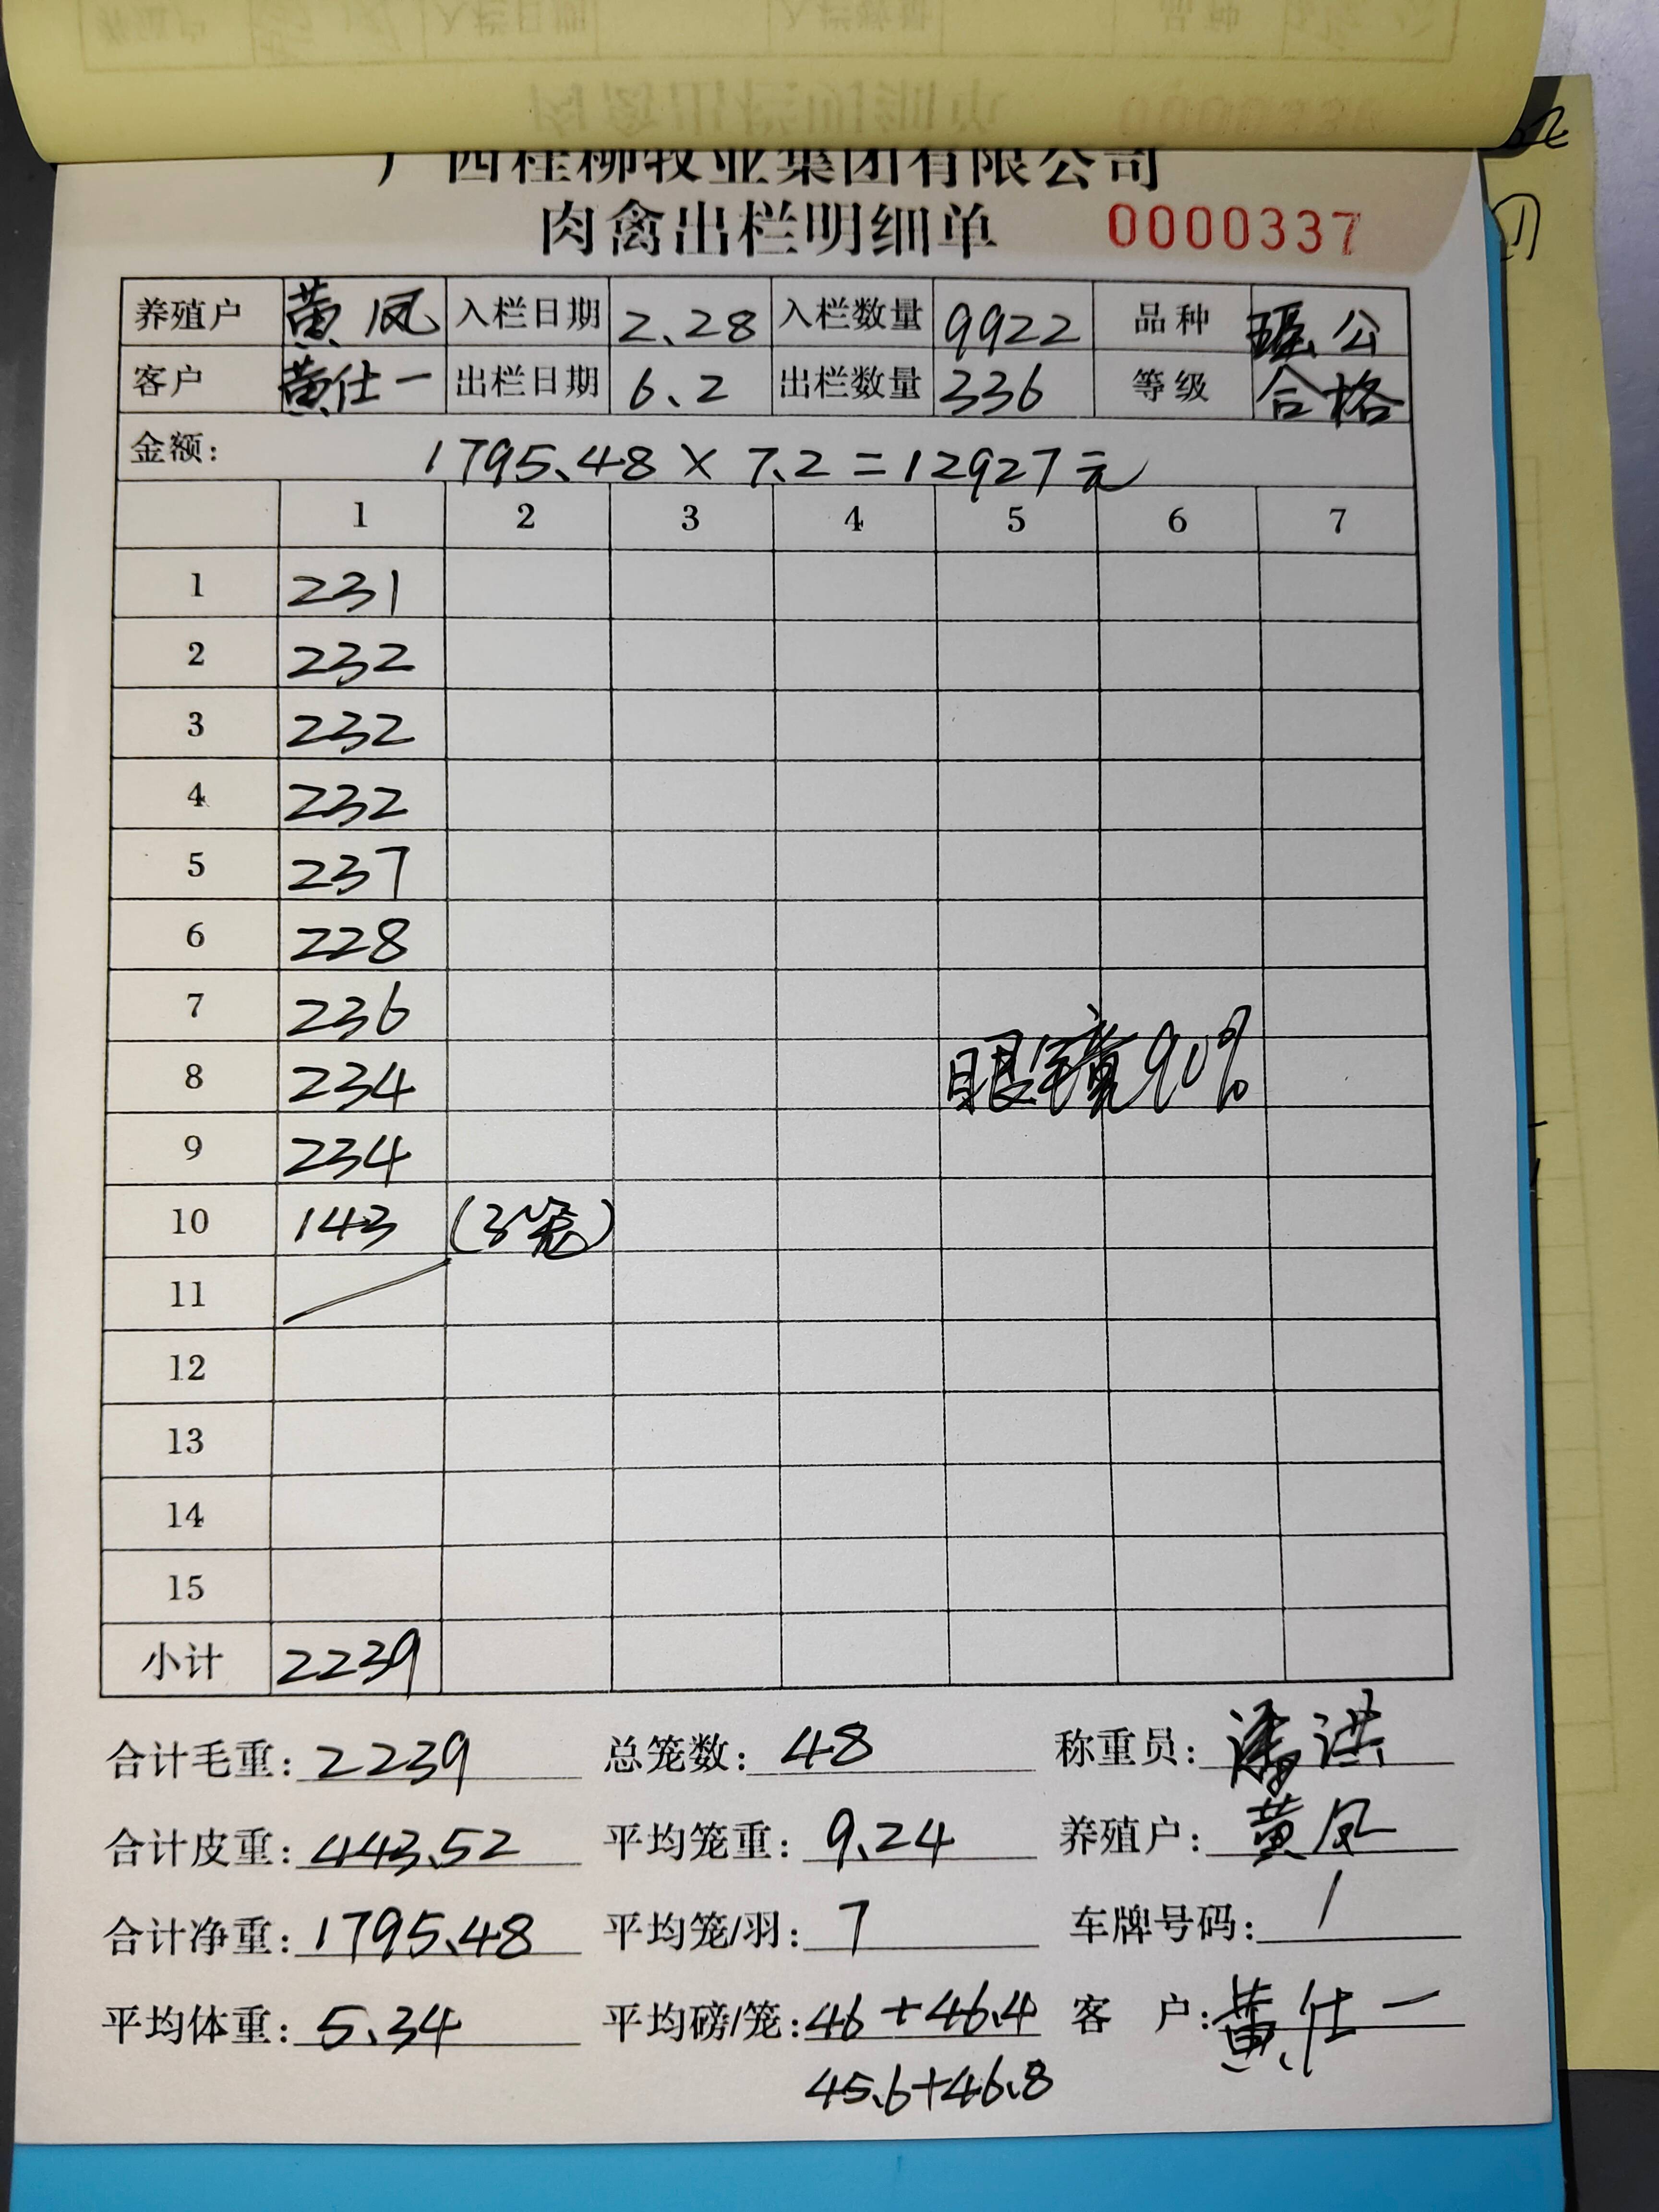 广西桂柳牧业集团有限公司
肉禽出栏明细单 0000337
养殖户 黄凤 入栏日期 2.28 入栏数量 9922 品种 瑶公
客户 黄仕一 出栏日期 6.2 出栏数量 336 等级 合格
金额: 1795.48 × 7.2 = 12927元
1 2 3 4 5 6 7
1 231
2 232
3 232
4 232
5 237
6 228
7 236
8 234 眼镜90%
9 234
10 143 (3笼)
11
12
13
14
15
小计 2239
合计毛重: 2239 总笼数: 48 称重员: 潘洪
合计皮重: 443.52 平均笼重: 9.24 养殖户: 黄凤
合计净重: 1795.48 平均笼/羽: 7 车牌号码: /
平均体重: 5.34 平均磅/笼: 46+46.4 客 户: 黄仕一
45.6+46.8